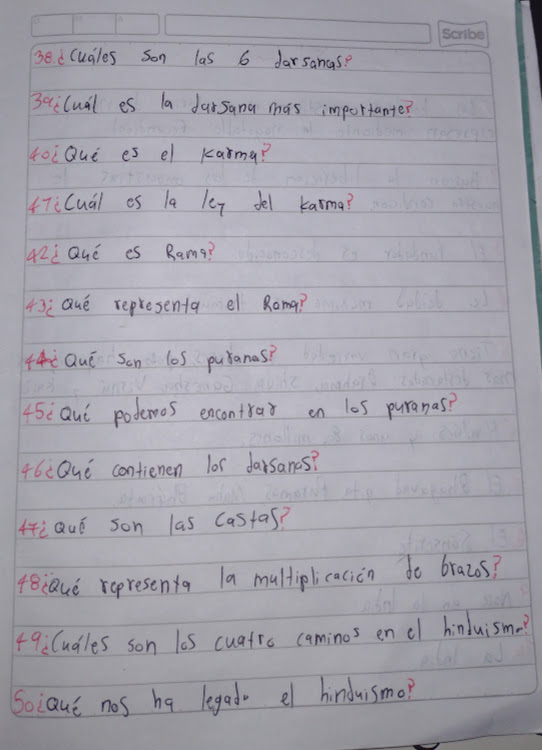 Scribe
38.¿Cuáles son las 6 darsanas?
39¿Cuál es la darsana más importante?
40¿Qué es el Karma?
41¿Cuál es la ley del karma?
42¿Qué es Rama?
43¿Qué representa el Rama?
44¿Qué son los puranas?
45¿Qué podemos encontrar en los puranas?
46¿Qué contienen los darsanas?
47¿Qué son las castas?
48¿Qué representa la multiplicación de brazos?
49¿Cuáles son los cuatro caminos en el hinduismo?
50¿Qué nos ha legado el hinduismo?